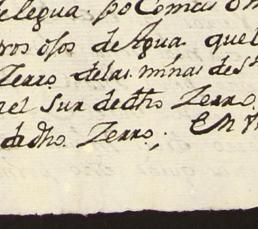 de legua. po Comas o m
ros ojos de Agua. quel
Zerro de las minas de Sn
ael Sur de dho Zerro.
de dho Zerro; En